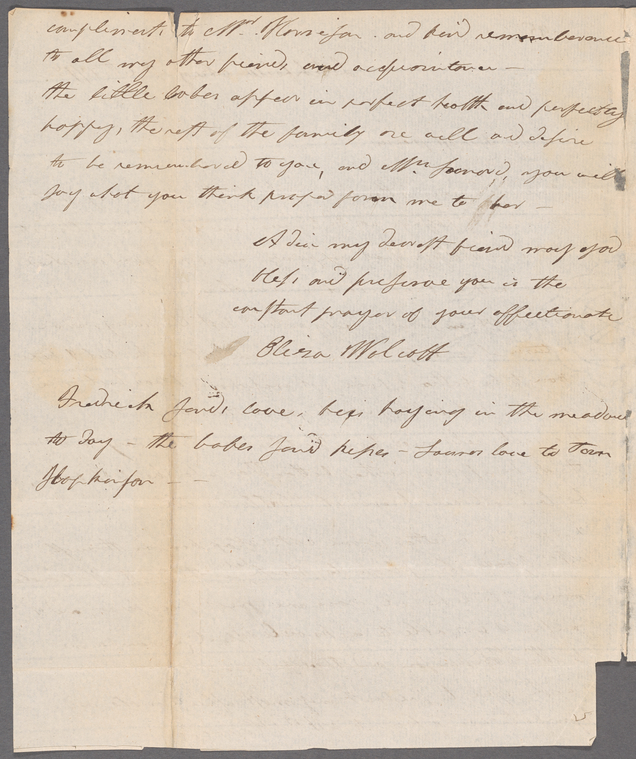 compliments to Mrs. Morrison and kind remembrance
to all my other friends and acquaintance —
the little babes appear in perfect health and perfectly
happy, the rest of the family are well and desire
to be remembered to you, and Mrs. you will
say what you think proper from me to her —
Adieu my dearest friend may god
bless and preserve you is the
constant prayer of your affectionate
Eliza Wolcott
Fredrick sends love, he is haying in the meadow
to day – the babes send kisses – love to Tom
Hopkinson —